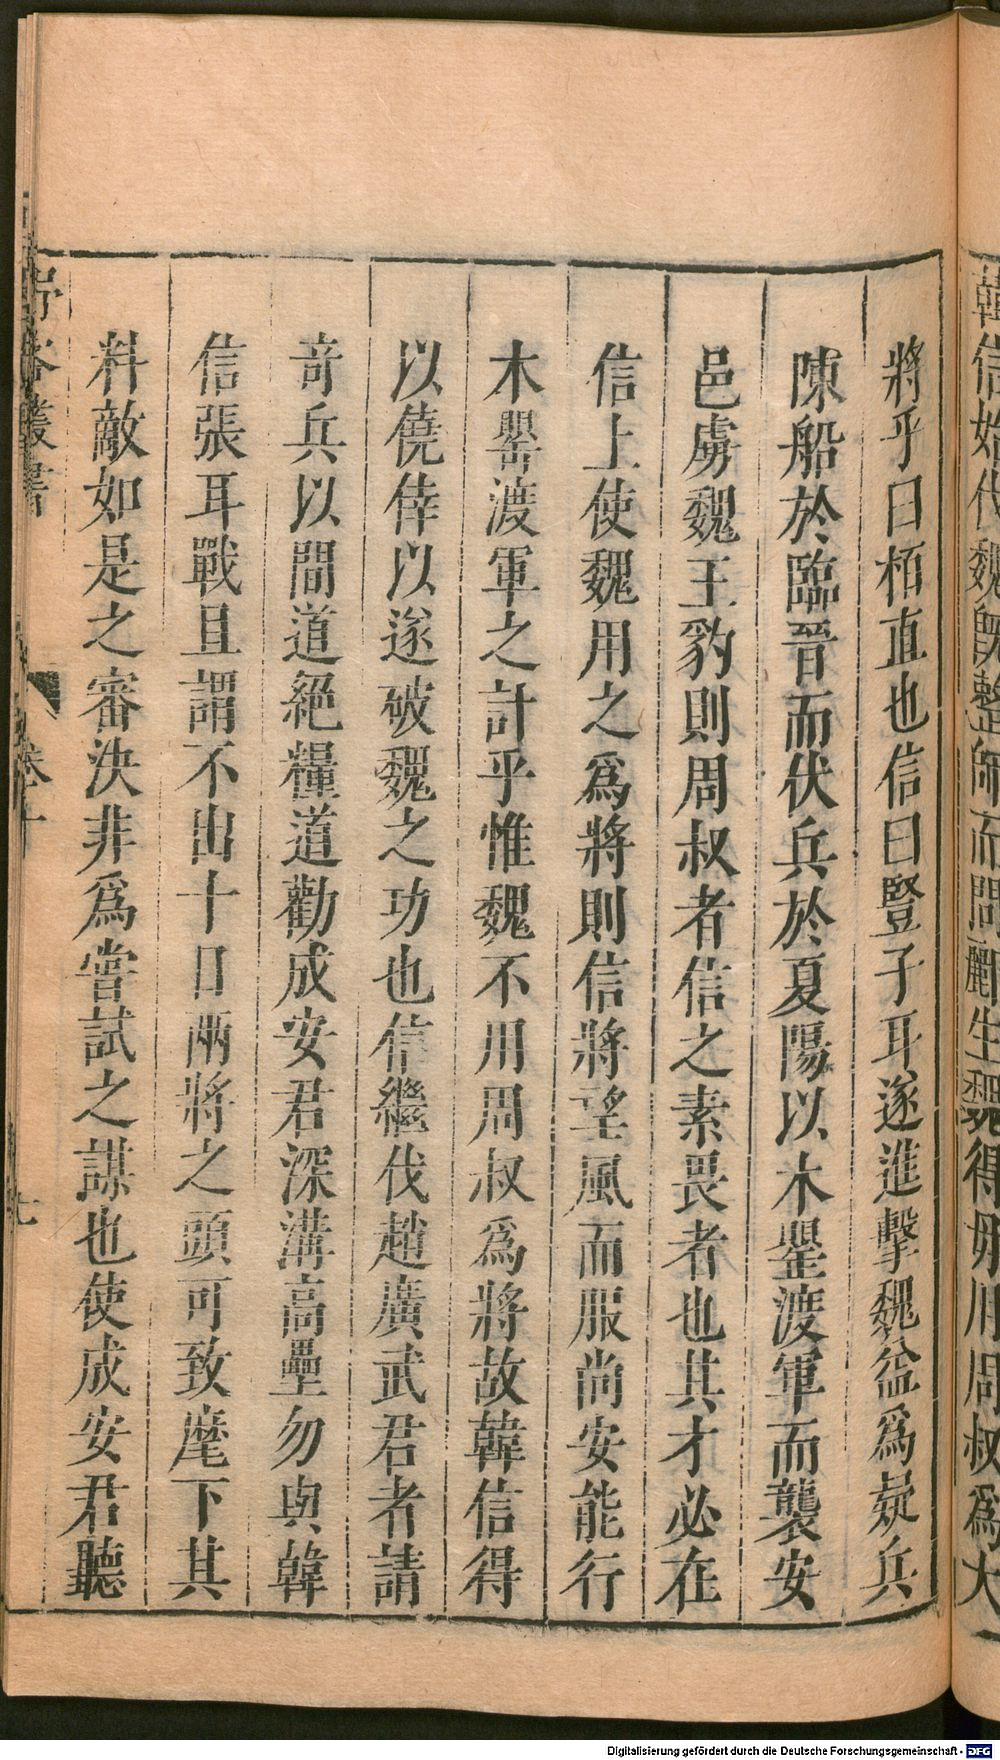 韓信始伐魏旣整師而問酈生魏得毋用周叔爲大
將乎曰栢直也信曰豎子耳遂進擊魏益爲疑兵
陳船於臨晉而伏兵於夏陽以木罌渡軍而襲安
邑虜魏王豹則周叔者信之素畏者也其才必在
信上使魏用之爲將則信將望風而服尚安能行
木罌渡軍之計乎惟魏不用周叔爲將故韓信得
以僥倖以遂破魏之功也信繼伐趙廣武君者請
奇兵以間道絕糧道勸成安君深溝高壘勿與韓
信張耳戰且謂不出十日兩將之頭可致麾下其
料敵如是之審決非爲嘗試之謀也使成安君聽
叢書
卷十
七
Digitalisierung gefördert durch die Deutsche Forschungsgemeinschaft - DFG